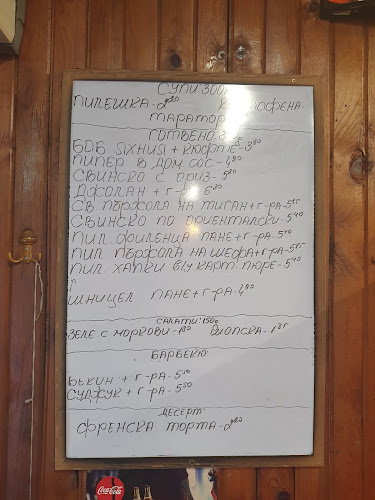 СУПИ 300г
ПИЛЕШКА - 2²⁰ КАРТОФЕНА
ТАРАТОР
ГОТВЕНО
БОБ ЯХНИЯ + КЮФТЕ - 3⁸⁰
ПИПЕР В ДОМ. СОС - 4⁹⁰
СВИНСКО С ОРИЗ - 5²⁰
ДЖОЛАН + Г-РА 6⁸⁰
СВ. ПЪРЖОЛА НА ТИГАН + Г-РА - 5⁹⁵
СВИНСКО ПО ОРИЕНТАЛСКИ - 5⁴⁰
ПИЛ. ФИЛЕНЦА ПАНЕ + Г-РА - 5⁵⁰
ПИЛ. ПЪРЖОЛА НА ШЕФА + Г-РА - 5⁶⁵
ПИЛ. ХАПКИ В/У КАРТ. ПЮРЕ - 5⁴⁰
ШНИЦЕЛ ПАНЕ + Г-РА - 4⁹⁰
САЛАТИ: 150г
ЗЕЛЕ С МОРКОВИ - 1⁸⁰ ШОПСКА - 1⁸⁵
БАРБЕКЮ
БЕКИН + Г-РА - 5⁵⁰
СУДЖУК + Г-РА - 5⁵⁰
ДЕСЕРТ
ФРЕНСКА ТОРТА - 2²⁰
Coca-Cola